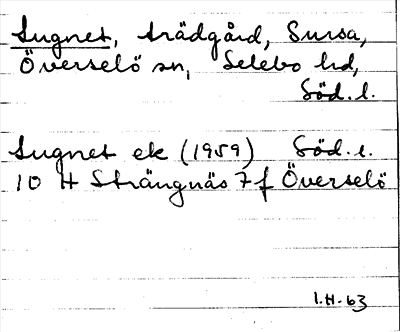 Lugnet, trädgård, Sursa,
Överselö sn, Selebo hd,
Söd. l.
Lugnet ek (1959) Söd. l.
10 H Strängnäs 7 f Överselö
I.H-63